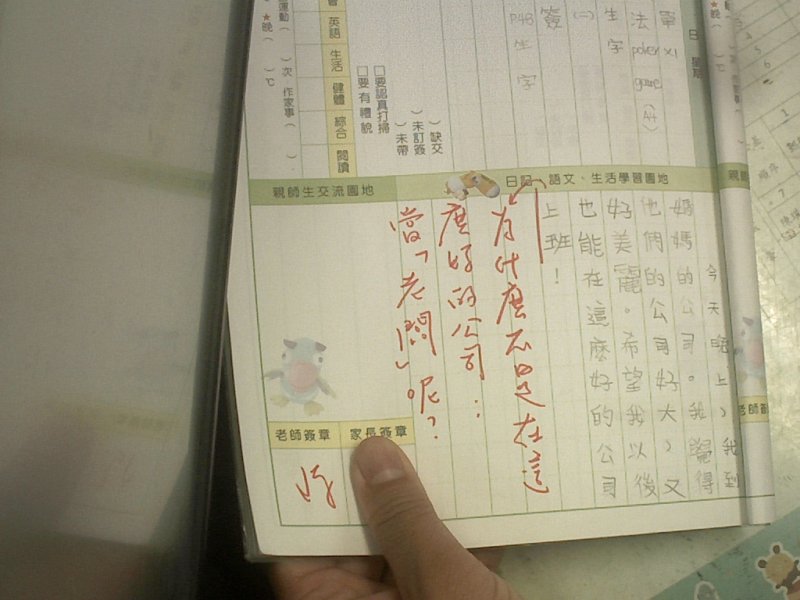 日 星期
單x1
法 poker game (A4)
生字
(一)
簽
P48 生字
( )缺交
( )未訂簽
( )未帶
□要認真打掃
□要有禮貌
英語 生活 健體 綜合 閱讀
運動( )次.作家事( )
★晚( )℃
日記、語文、生活學習園地
親師生交流園地
今天晚上,我到
媽媽的公司。我覺得
他們的公司好大,又
好美麗。希望我以後
也能在這麼好的公司
上班!
為什麼不是在這
麼好的公司:
當「老闆」呢?
老師簽章
家長簽章